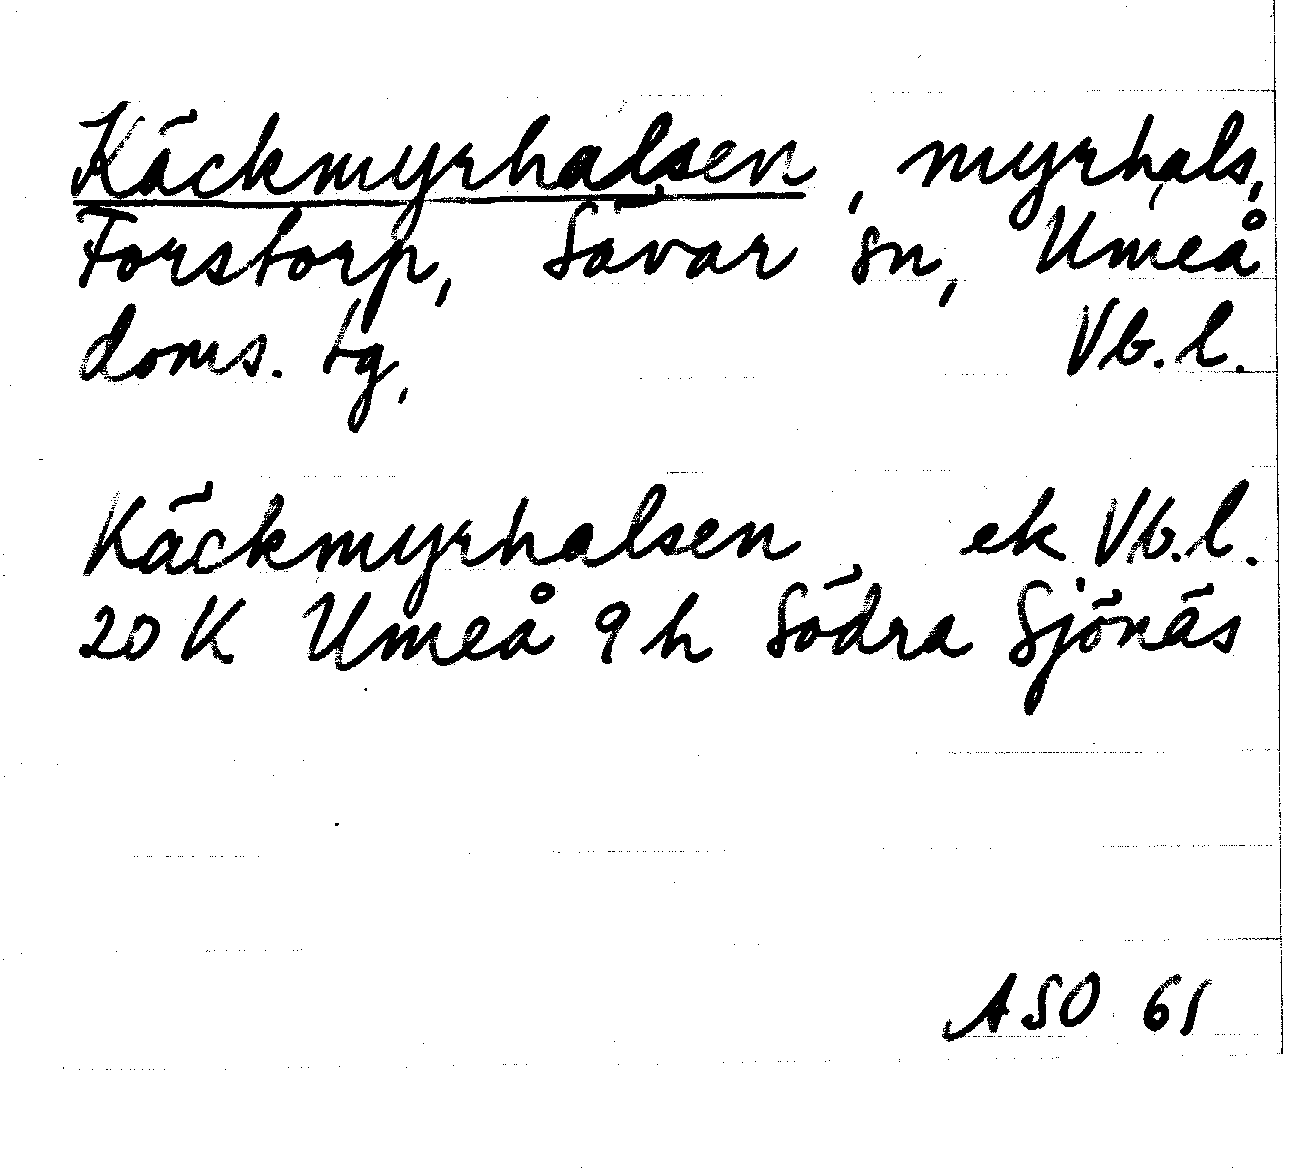 Käckmyrhalsen, myrhals,
Forstorp, Sävar sn, Umeå
doms. tg, Vb. l.
Käckmyrhalsen ek Vb. l.
20 K Umeå 9 h Södra Sjönäs
ASO 61